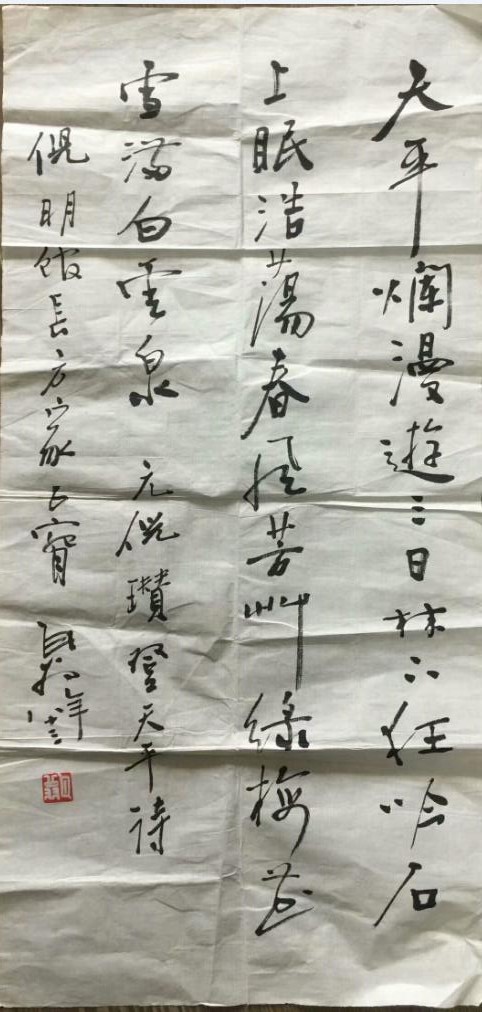 天平爛漫遊三日林下狂吟石
上眠浩蕩春風芳艸綠梅花
雪滿白雲泉 元倪瓚登天平詩
倪明館長方家正賞